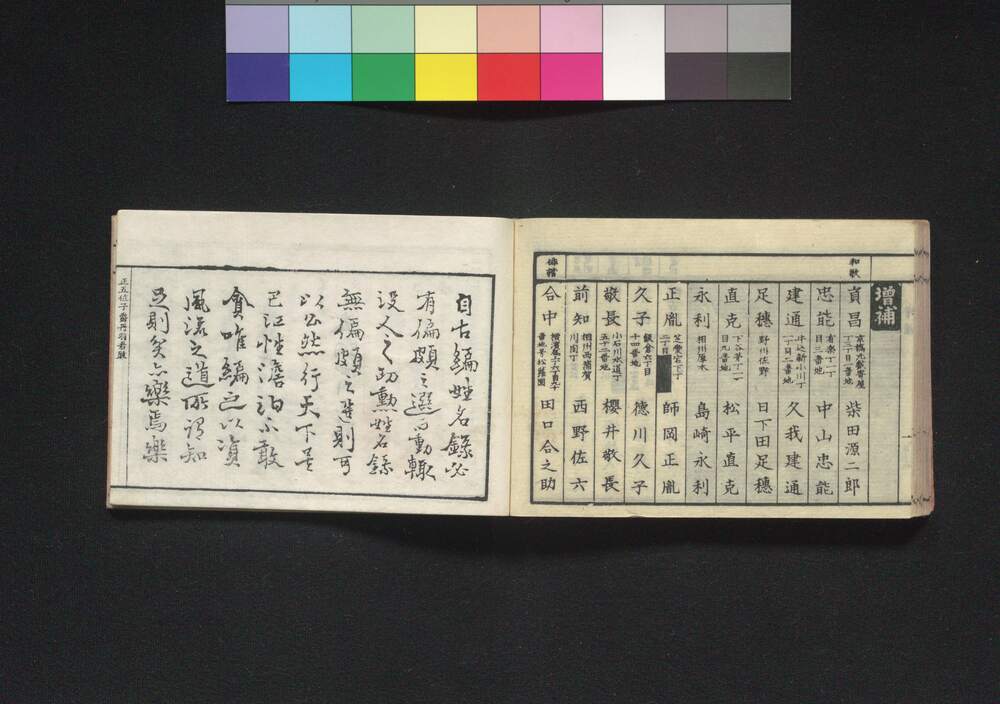 増補
和歌
貞昌 京橋元数寄屋丁二丁目一番地 柴田源二郎
忠能 有楽丁二丁目三番地 中山忠能
建通 牛込新小川丁二丁目二番地 久我建通
足穂 野州佐野 日下田足穂
直克 下谷茅丁二丁目九番地 松平直克
永利 相州厚木 島崎永利
正胤 芝愛宕下丁二丁目 師岡正胤
久子 飯倉六丁目十四番地 德川久子
敬長 小石川水道丁五十二番地 櫻井敬長
前知 相州西浦賀川間丁 西野佐六
俳諧
合中 田口合之助
自古編姓名錄必
有偏頗之選而動輙
没人之功勲姓名錄
無偏頗之選則可
以公然行天下吾
已江性澹泊不敢
貪唯編之以資
風流之道所謂知
足則矣亦樂焉樂